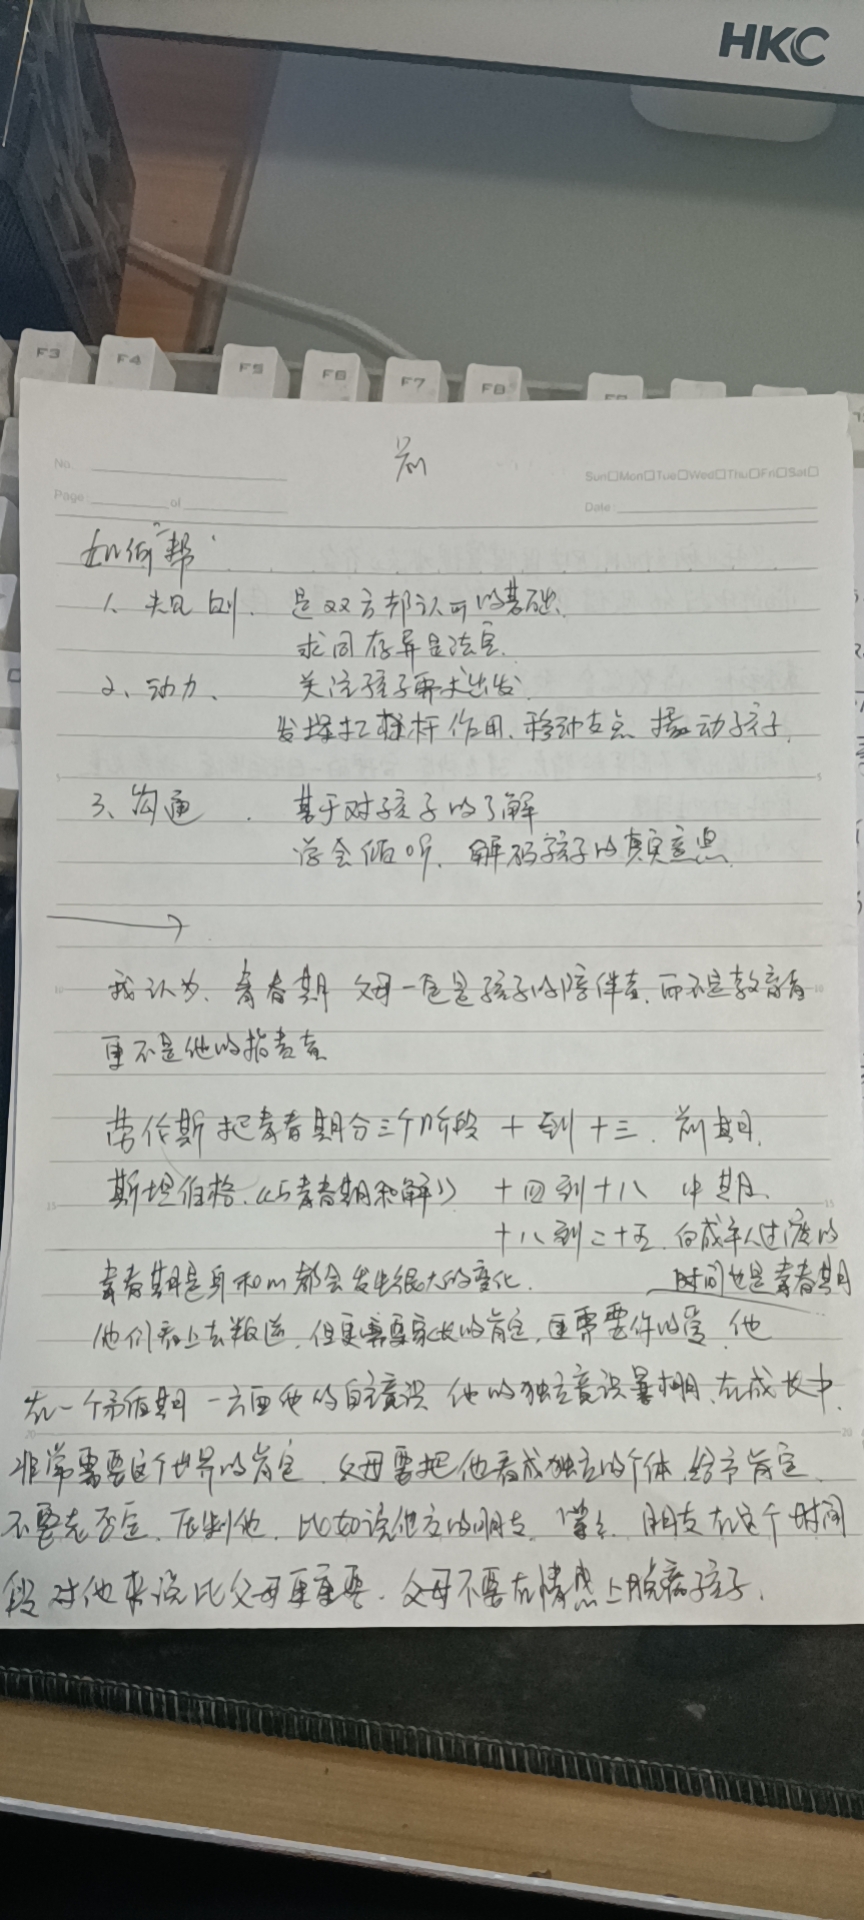 HKC
F3 F4 F5 F6 F7 F8
前
No.
Sun□Mon□Tue□Wed□Thu□Fri□Sat□
Page of
Date:
如何"帮"
1、规则. 是双方都认可的基础、
求同存异是法宝.
2、动力、 关注孩子需求出发
发挥杠杆作用、移动支点 撬动孩子.
3、沟通 . 基于对孩子的了解
学会倾听、解码孩子的真实意思.
我认为、青春期 父母一定是孩子的陪伴者、而不是教育者
更不是他的指责者
劳伦斯 把青春期分三个阶段 十到十三. 前期.
斯坦伯格.《与青春期和解》 十四到十八 中期.
十八到二十五. 向成年人过渡的
青春期是身和心都会发生很大的变化. 时间也是青春期
他们看上去叛逆、但更需要家长的肯定、更需要你的爱、他
在一个矛盾期 一方面他的自主意识 他的独立意识萌、在成长中.
非常需要这个世界的肯定、父母要把他看成独立的个体、给予肯定.
不要先否定、压制他、比如说他交的朋友、 朋友在这个时间
段对他来说比父母更重要、父母不要在情感上脱离孩子.